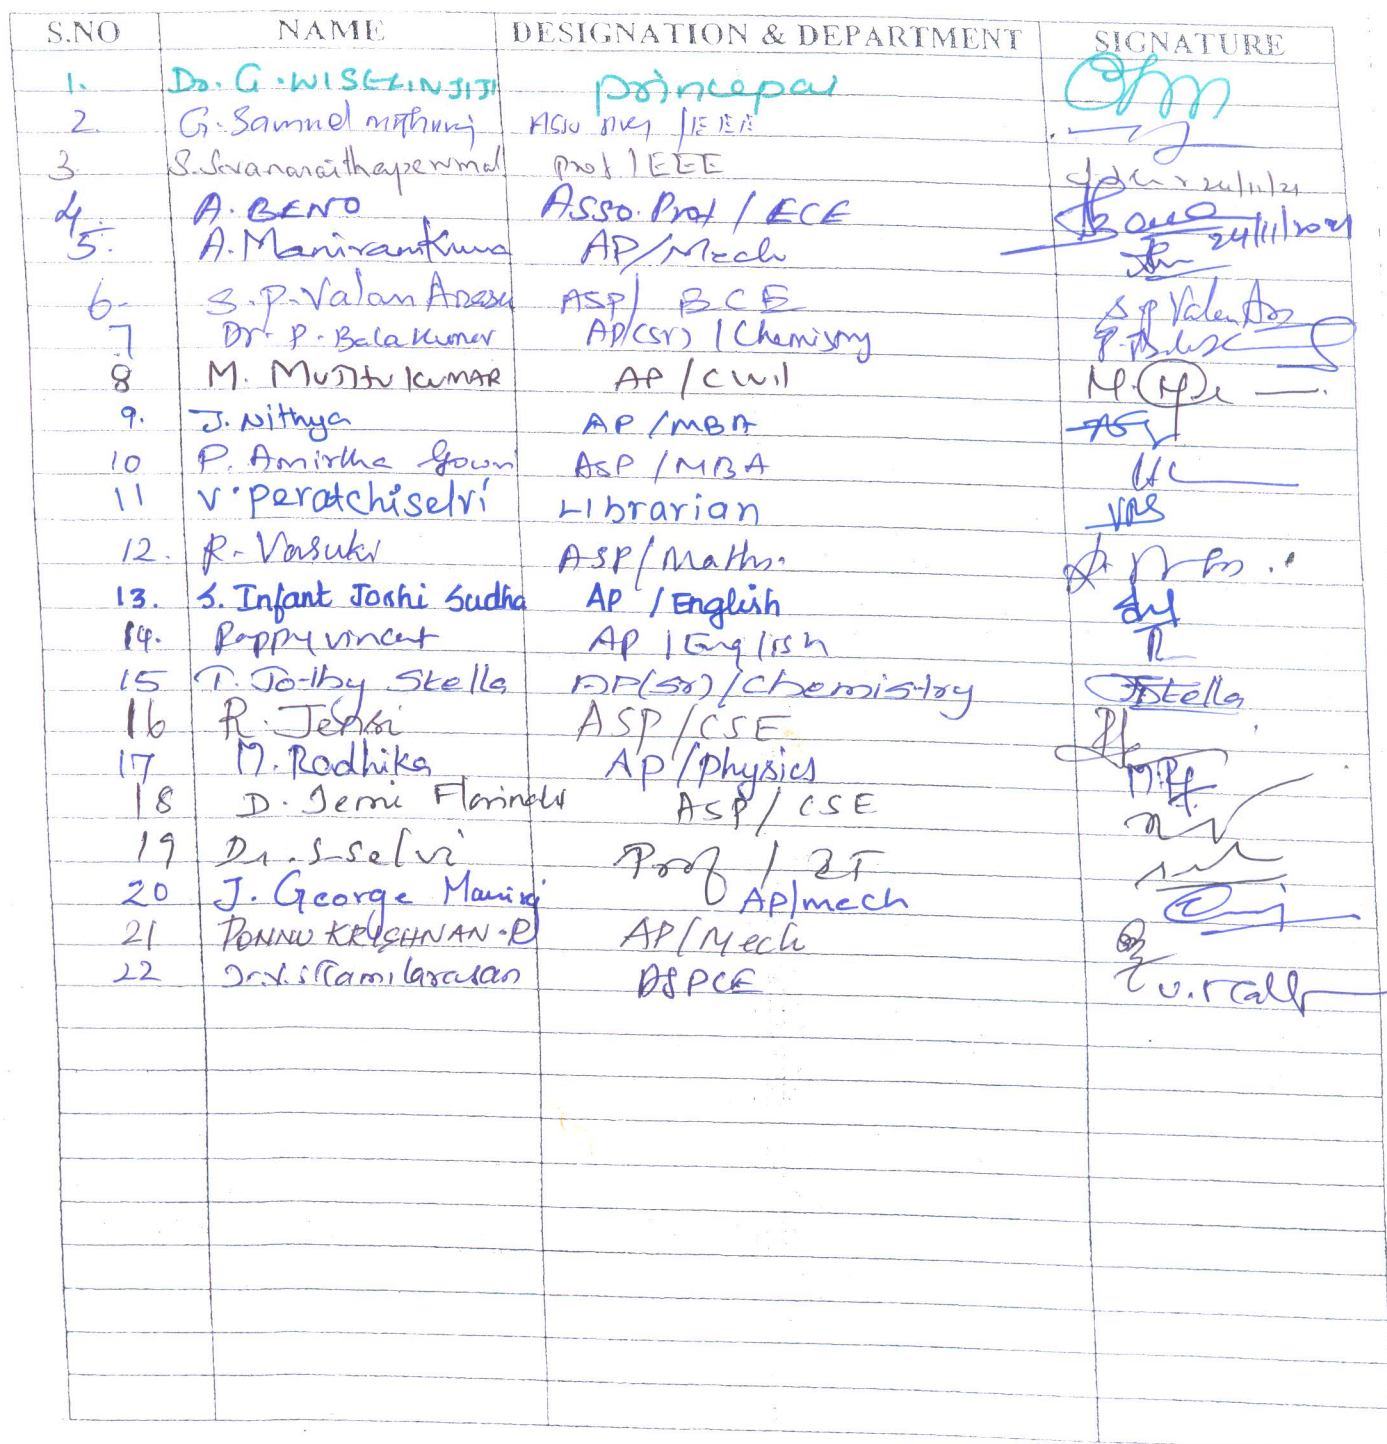 S.NO NAME DESIGNATION & DEPARTMENT SIGNATURE
1. Dr. G. WISELIN JIJI principal
2. G. Samuel / EEE
3 prof / EEE 24/11/21
4. A. BENO Asso. Prof / ECE 24/11/2021
5. A. Manivannkuma AP/Mech
6. S.P. Valan Arasu ASP/ ECE S P Valan Ars
7 Dr. P. Balakumar AP(Sr) / Chemistry
8 M. MUTHU KUMAR AP / Civil
9. J. Nithya AP / MBA
10 P. Amirtha Gowri ASP / MBA
11 V. Peratchiselvi Librarian VPS
12. R. Vasuki ASP/Maths.
13. S. Infant Joshi Sudha AP / English
14. Poppy vincent AP / English
15 T. Jothy Stella AP(Sr) / Chemistry JStella
16 R. Jensi ASP/CSE
17 M. Radhika AP/physics
18 D. Jemi Florinabel ASP / CSE
19 Dr. S. Selvi Prof / IT
20 J. George Maniraj AP/mech
21 PONNU KRISHNAN. P AP/Mech
22 Tamilarasan